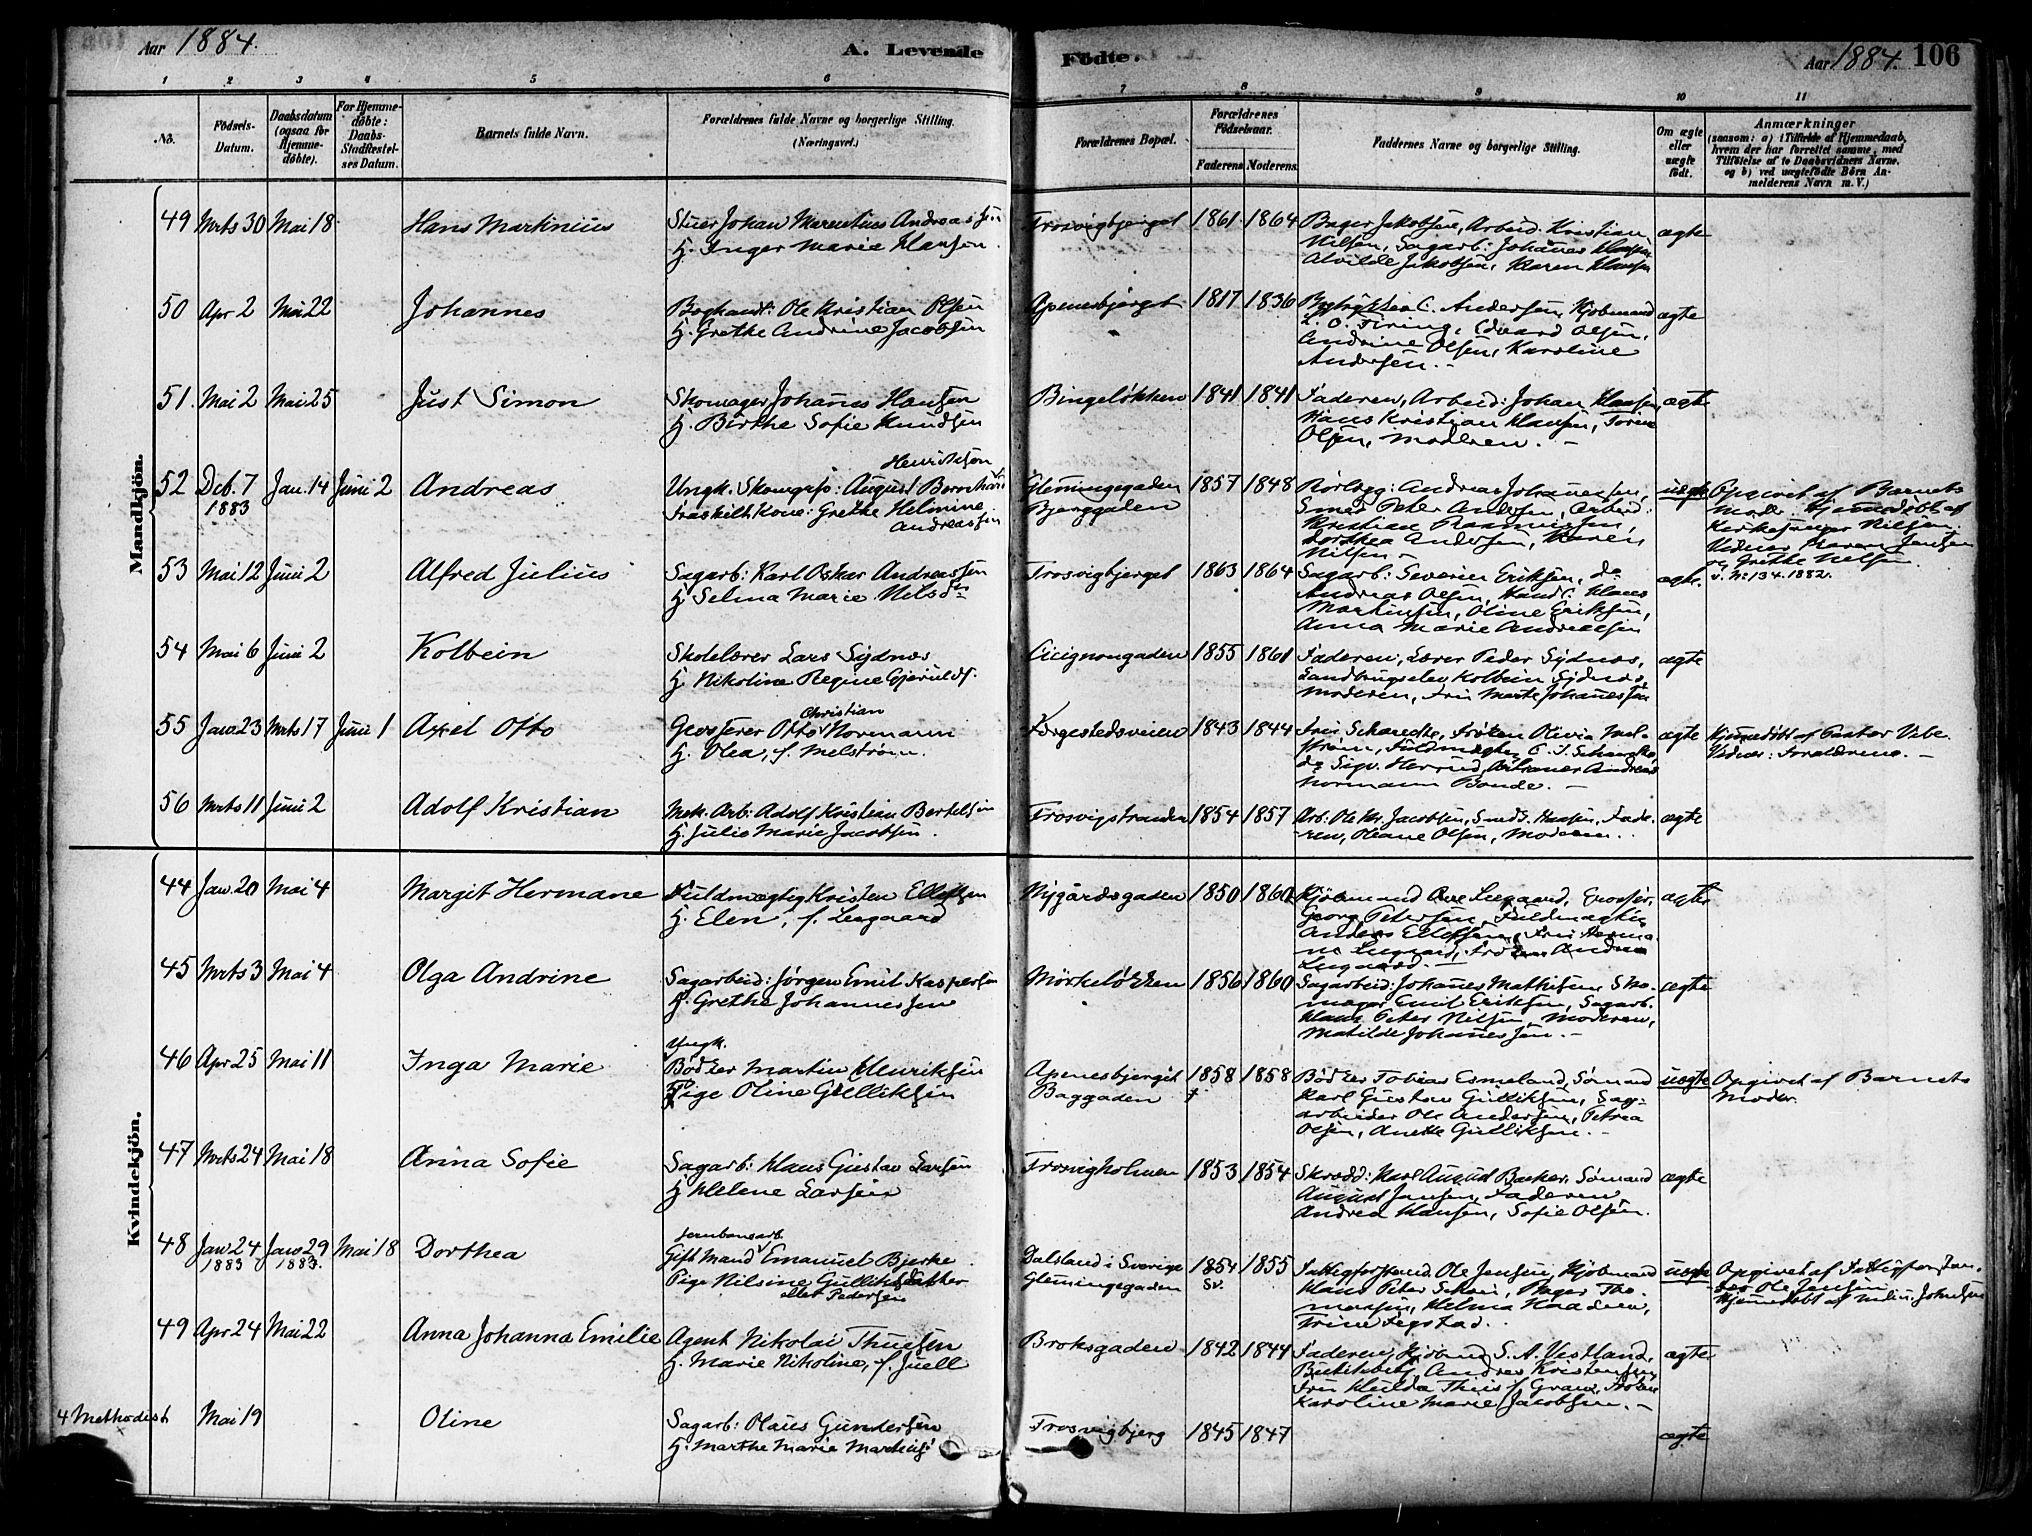 Aar 1884. A. Levende Fødte. Aar 1884. 106
1 2 3 4 5 6 7 8 9 10 11
No.
Fødsels-Datum.
Daabsdatum (ogsaa for Hjemmedøbte).
For Hjemmedøbte: Daabs-Stadfæstelses Datum.
Barnets fulde Navn.
Forældrenes fulde Navne og borgerlige Stilling. (Næringsvei.)
Forældrenes Bopæl.
Forældrenes Fødselsaar.
Faderens Moderens.
Faddernes Navne og borgerlige Stilling.
Om ægte eller uægte født.
Anmærkninger
(saasom: a) i Tilfælde af Hjemmedaab,
hvem der har forrettet samme, med
Tilføielse af to Daabsvidners Navne,
og b) ved uægtefødte Børn Anmelderens Navn m. V.)
Mandkjön.
49 Mrts 30 Mai 18 Hans Martinius
Stuer Johan Marentius Andreassen
H. Inger Marie Hansen.
Trosvigbjerget 1861 1864
Bager Jakobsen, Arbeid. Kristian
Nilsen, Sagarb: Johannes Hansen
Alvilde Jakobsen, Karen Hansen
ægte
50 Apr 2 Mai 22 Johannes
Boghandl: Ole Kristian Olsen
H. Grethe Andrine Jacobsen
Apenesbjerget 1817 1836
C. Andersen, Kjøbmand
L. O. Firing, Edvard Olsen,
Andrine Olsen, Karoline
Andersen.
ægte
51. Mai 2 Mai 25 Just Simon
Skomager Johannes Hansen
H. Birthe Sofie Knudsen
Bingeløkken 1841 1841
Faderen, Arbeid: Johan Hansen,
Hans Kristian Hansen, Torine
Olsen, Moderen.
ægte
52 Dcb. 7 1883 Jan. 14 Juni 2 Andreas
Henriksen
Ungk. Skomgrs: August Bernhard
Fraskilt Kone: Grethe Helmine
Andreassen
Glemmingegaden
Bjerggaden
1857 1848
Rørlegg: Andreas Johannessen,
Smed Peter Andersen, Arbeid:
Kristian Rasmussen,
Dorthea Andersen, Karen
Nilsen
uægte
Opgivet af Barnets
Moder. Hjemmedøbt af
Kirkesanger Nilsen.
Vidner Maren Jensen
og Grethe Nilsen
v. No 134. 1882.
53 Mai 12 Juni 2 Alfred Julius
Sagarb: Karl Oskar Andreassen
H. Selma Marie Nilsdr
Trosvigbjerget 1863 1864
Sagarb: Severin Eriksen, do
Andreas Olsen, Handl. Klaus
Martinsen, Oline Eriksen,
Anna Marie Andreassen
ægte.
54 Mai 6 Juni 2 Kolbein
Skolelærer Lars Sydnæs
H. Nikoline Regine Gjeruldsen
Cicignongaden 1855 1861
Faderen, Lærer Peder Sydnæs,
Landbrugselev Kolbein Sydnæs,
Moderen, Frk Marte Johannessen
ægte
55 Janu. 23 Mrts 17 Juni 1 Axel Otto
Christian
Grosserer Otto Normann
H. Olea, f. Melstrøm.
Færgestedsveien 1843 1844
Fru Schandke, Frøken Olivia Melstrøm, Fuldmægtig C. J. Schandke,
do Sigv. Herrud,
Normann Bonde.
ægte
Hjemmedøbt af Pastor Vibe.
Vidner: Forældrene.
56 Mrts 11 Juni 2 Adolf Kristian
Mek. Arb: Adolf Kristian Bertelsen
H. Julie Marie Jacobsen.
Trosvigstranden 1854 1857
Arb: Ole Kr. Jacobsen, Smed S. Hansen, Faderen, Oleane Olsen, Moderen.
ægte
Kvindekjön.
44 Jan. 20 Mai 4 Margit Hermane
Fuldmægtig Kristen Ellefsen
H. Elen, f. Leegaard
Nygårdsgaden 1850 1860
Kjøbmand Ove Leegaard, Grosser.
Georg Petersen, Fuldmægtig
Anders Ellefsen, Fru Hermane Leegaard, Frøken Andrea
Leegaard.
ægte
45 Mrts 3 Mai 4 Olga Andrine
Sagarbeid: Jørgen Emil Kaspersen
H. Grethe Johannessen
Mørkeløkken 1856 1860
Sagarbeid: Johannes Mathisen, Skomager Emil Eriksen, Sagarb.
Hans Peter Nilsen, Moderen,
Matilde Johannessen.
ægte
46 Apr 25 Mai 11 Inga Marie
Ungk.
Bødker Martin Henriksen
Pige Oline Gulliksen
Apenesbjerget
Baggaden
1858 1858
Bødker Tobias Esmeland, Sømand
Karl Gustav Gulliksen, Sagarbeider Ole Andersen, Petrea
Olsen, Anette Gulliksen.
uægte
Opgivet af Barnets
Moder
47 Mrts 24 Mai 18 Anna Sofie
Sagarb: Klaus Gustav Larsen
H. Helene Larsen
Trosvigholmen 1853 1854
Skrædd: Karl August Backer, Sømand
August Jansen, Faderen
Andrea Hansen, Sofie Olsen.
ægte
48 Janu 24 1883 Janu 29 1883. Mai 18 Dorthea
Jernbanearb.
Gift Mand Emanuel Bjerke.
Pige Nilsine Gulliksdatter
eller Pedersen
Dalsland i Sverige
Glemingegaden
1854 Sv. 1855
Fattigforstand. Ole Jensen, Kjøbmand
Hans Peter Schei, Bager Thomassen, Helma Knudsen,
Trine Fegstad.
uægte
Opgivet af Fattigforstander Ole Jensen
Hjemmedøbt af Johnsen
49 Apr 24 Mai 22 Anna Johanna Emilie
Agent Nikolai Thuesen
H. Marie Nikoline, f. Juell
Broksgaden 1842 1844
Faderen, Kjøbmd S. A. Vestland,
Andrev Kristensen,
Fru Hulda Thiis f. Gran, Frøken
Karoline Marie Jacobsen.
ægte
4 Methodist Mai 19 Oline
Sagarb: Olaus Gundersen
H. Marthe Marie
Trosvigbjerg 1845 1847
ægte